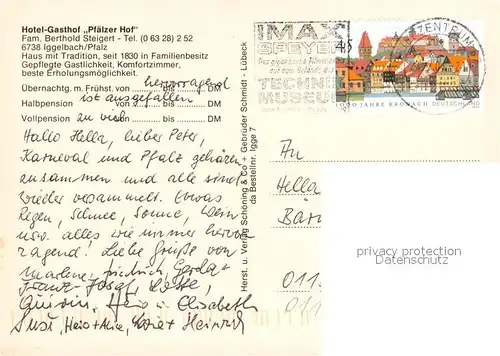 Hotel-Gasthof „Pfälzer Hof"
Fam. Berthold Steigert - Tel. (0 63 28) 2 52
6738 Iggelbach/Pfalz
Haus mit Tradition, seit 1830 in Familienbesitz
Gepflegte Gastlichkeit, Komfortzimmer,
beste Erholungsmöglichkeit.
hervorragend
Übernachtg. m. Frühst. von bis DM
ist ausgefallen
Halbpension von bis DM
zu viel
Vollpension an bis DM
Hallo Hella, lieber Peter,
Karneval und Pfalz gehören
zusammen und alle sind
wieder versammelt. Etwas
Regen, Schnee, Sonne, Wein
usw. alles wie immer hervor
ragend! Liebe Grüße von
Marlene, Friedrich, Gerda +
Franz-Josef, Lotte,
Quirin, Elisabeth
Susi, Heinrich
Herst. u. Verlag Schöning & Co + Gebrüder Schmidt - Lübeck
da Bestellnr. Igge 7
IMAX
SPEYER
TECHNIK
MUSEUM
45
1000 JAHRE KRONACH DEUTSCHLAND
BRIEFZENTRUM
An
Hella
Bar
011
privacy protection
Datenschutz